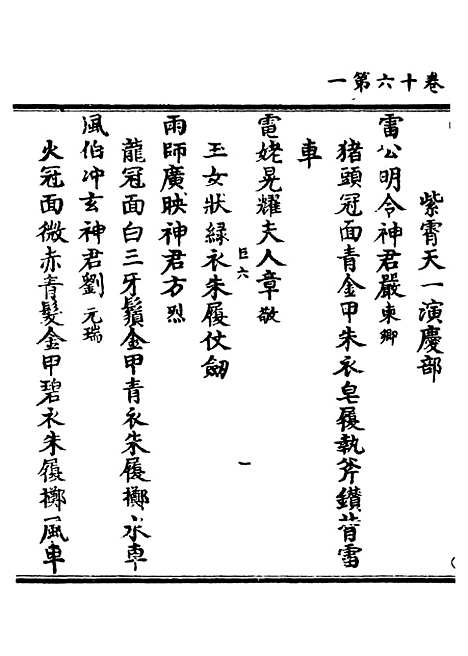 卷十六第一
紫霄天一演慶部
雷公明令神君嚴東卿
猪頭冠面青金甲朱衣皂履執斧鑽背雷
車
電姥晃耀夫人章敬
巨六
玉女狀緑衣朱履仗劒
一
雨師廣映神君方烈
龍冠面白三牙鬚金甲青衣朱履擲水車
風伯冲玄神君劉元瑞
火冠面微赤青髮金甲碧衣朱履擲風車